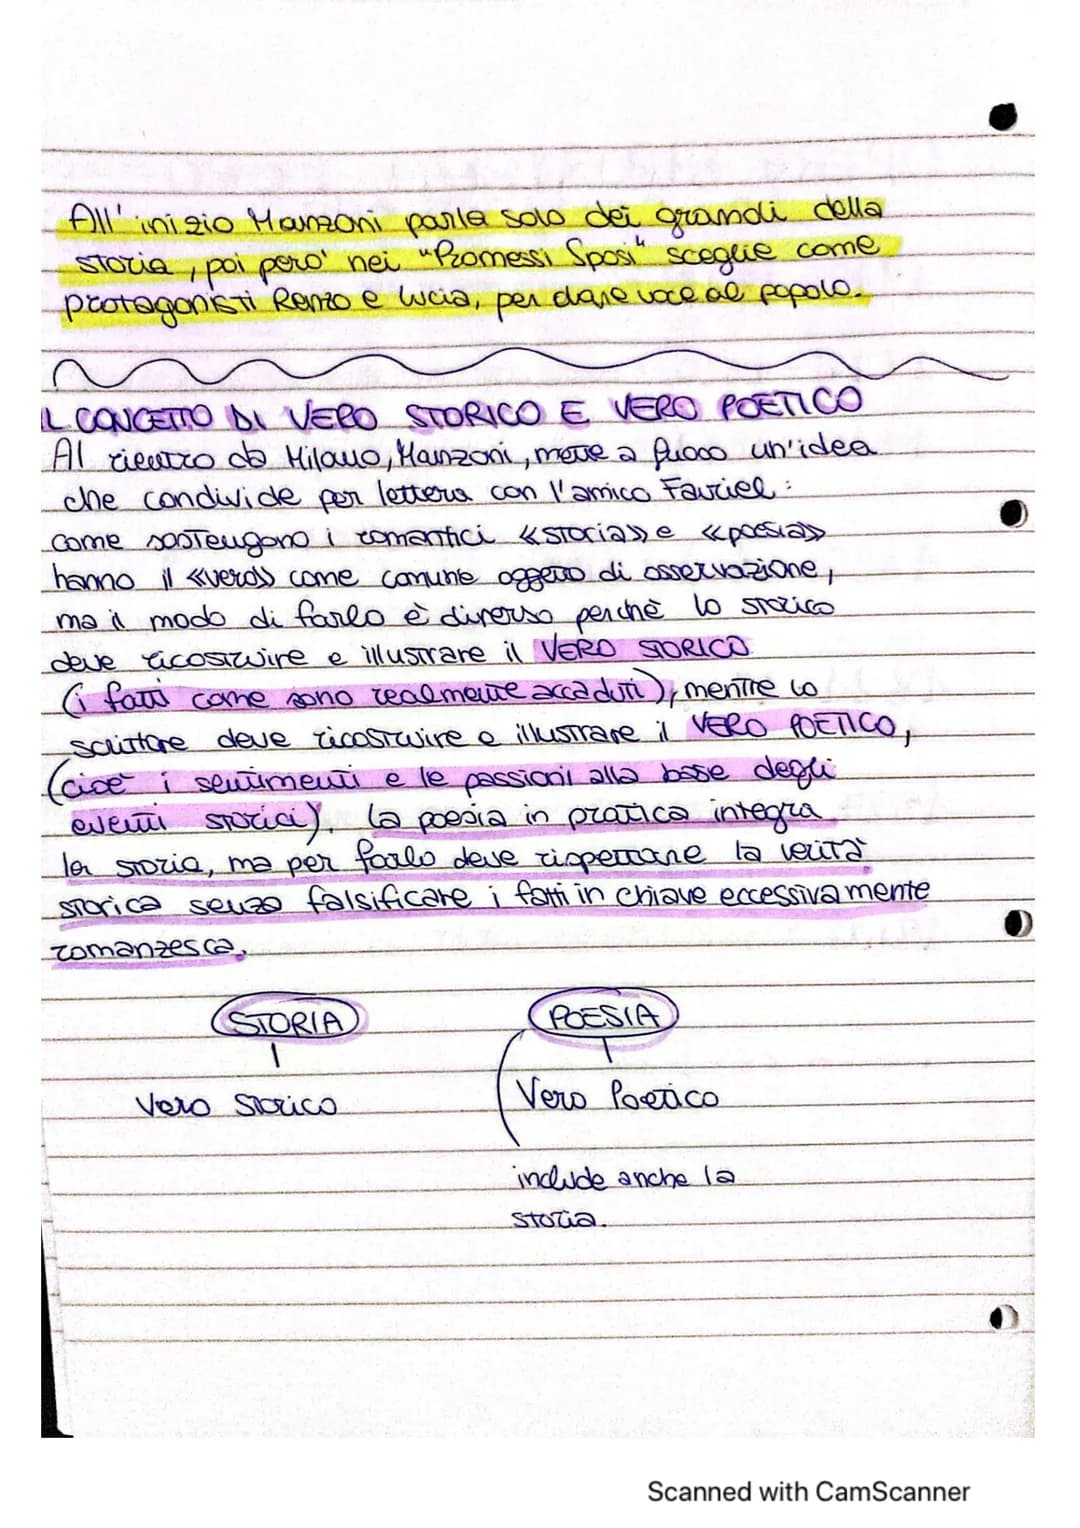 All' inizio Manzoni parla solo dei grandi della
storia, poi pero' nei "Promessi Sposi" sceglie come
protagonisti Renzo e Lucia, per dare voce al popolo.
IL CONCETTO DI VERO STORICO E VERO POETICO
Al rientro da Milano, Manzoni, mette a fuoco un'idea
che condivide per lettera con l'amico Fauriel:
come sostengono i romantici «storia» e «poesia»
hanno il «vero» come comune oggetto di osservazione,
ma il modo di farlo è diverso perchè lo storico
deve ricostruire e illustrare il VERO STORICO
(i fatti come sono realmente accaduti), mentre lo
scrittore deve ricostruire e illustrare il VERO POETICO,
(cioe' i sentimenti e le passioni alla base degli
eventi storici). La poesia in pratica integra
la storia, ma per farlo deve rispettare la verità
storica senza falsificare i fatti in chiave eccessivamente
romanzesca.
STORIA POESIA
Vero Storico Vero Poetico
include anche la
storia.
Scanned with CamScanner